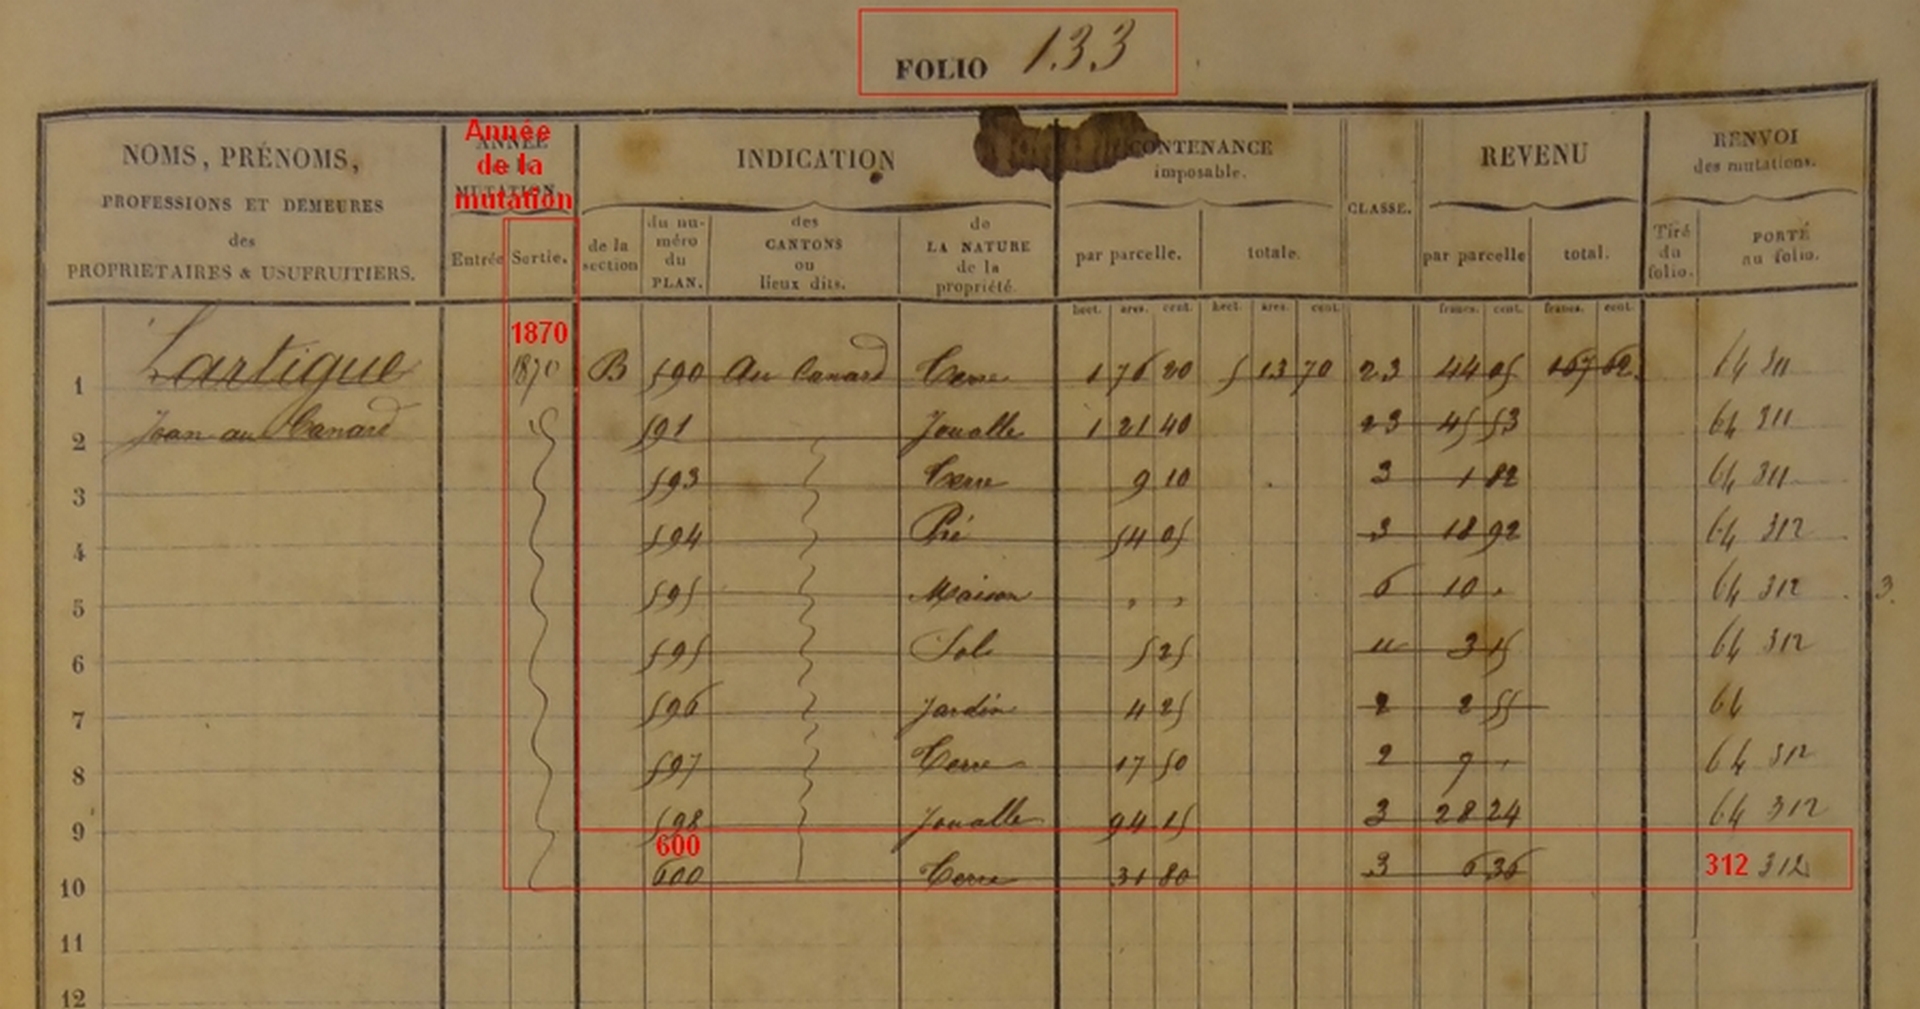 FOLIO 133
NOMS, PRÉNOMS,
PROFESSIONS ET DEMEURES
des
PROPRIETAIRES & USUFRUITIERS.
ANNÉE
de la
MUTATION.
Année
de la
mutation
Entrée Sortie.
INDICATION
de la section
du nu-
méro
du
PLAN.
des
CANTONS
ou
lieux dits.
de
LA NATURE
de la
propriété.
CONTENANCE
imposable.
par parcelle. totale.
CLASSE.
REVENU
par parcelle total.
RENVOI
des mutations.
Tiré
du
folio.
PORTÉ
au folio.
hect. ares. cent. hect. ares. cent. francs. cent. francs. cent.
1870
1 Lartigue 1870 B 590 Au Canard Terre 1 76 20 5 13 70 23 44 05 167 62 64 311
2 Jean au Canard 591 Joualle 1 21 40 23 45 53 64 311
3 593 Terre 9 10 3 1 82 64 311
4 594 Pré 54 05 3 18 92 64 312
5 595 Maison " " 6 10 " 64 312
6 595 Sol 5 25 " 3 15 64 312
7 596 Jardin 4 25 2 2 55 64
8 597 Terre 17 50 2 7 " 64 312
9 598 Joualle 94 15 3 28 24 64 312
600
10 600 Terre 31 80 3 6 36 312 312
11
12
3.